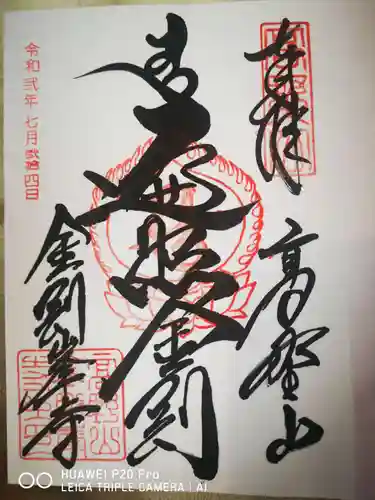 奉拝
高野山
遍照金剛
金剛峯寺
令和弐年七月弐拾四日
HUAWEI P20 Pro
LEICA TRIPLE CAMERA | AI